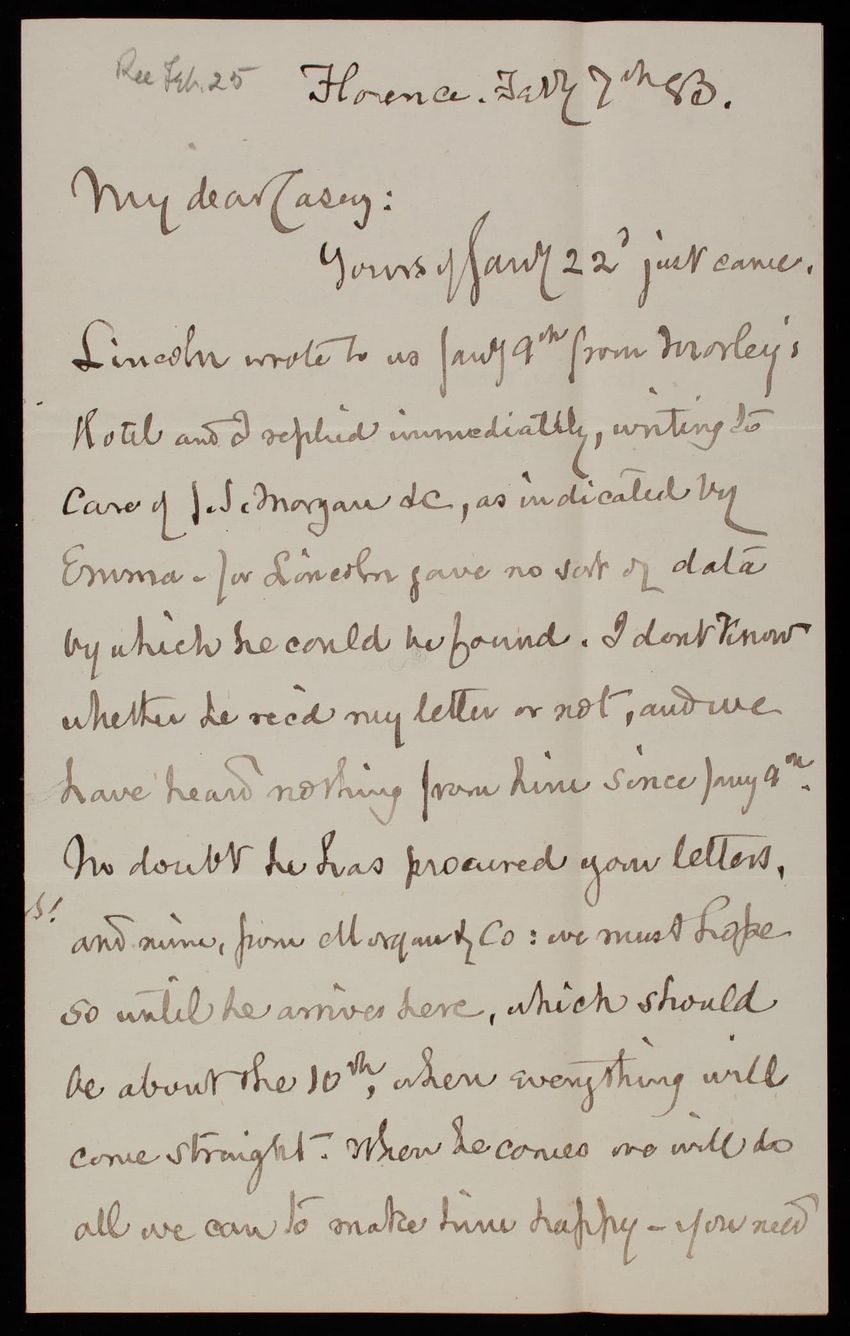 Rec Feb. 25
Florence. Feby 7th 83.
My dear Casey:
Yours of Jany 22d just came.
Lincoln wrote to us Jany 9th from Morley's
Hotel and I replied immediately, writing to
care of J. S. Morgan &c, as indicated by
Emma - for Lincoln gave no sort of data
by which he could be found. I dont know
whether he rec'd my letter or not, and we
have heard nothing from him since Jany 9th.
No doubt he has procured your letters,
and mine, from Morgan & Co: we must hope
so until he arrives here, which should
be about the 10th, when everything will
come straight. When he comes we will do
all we can to make him happy - you need